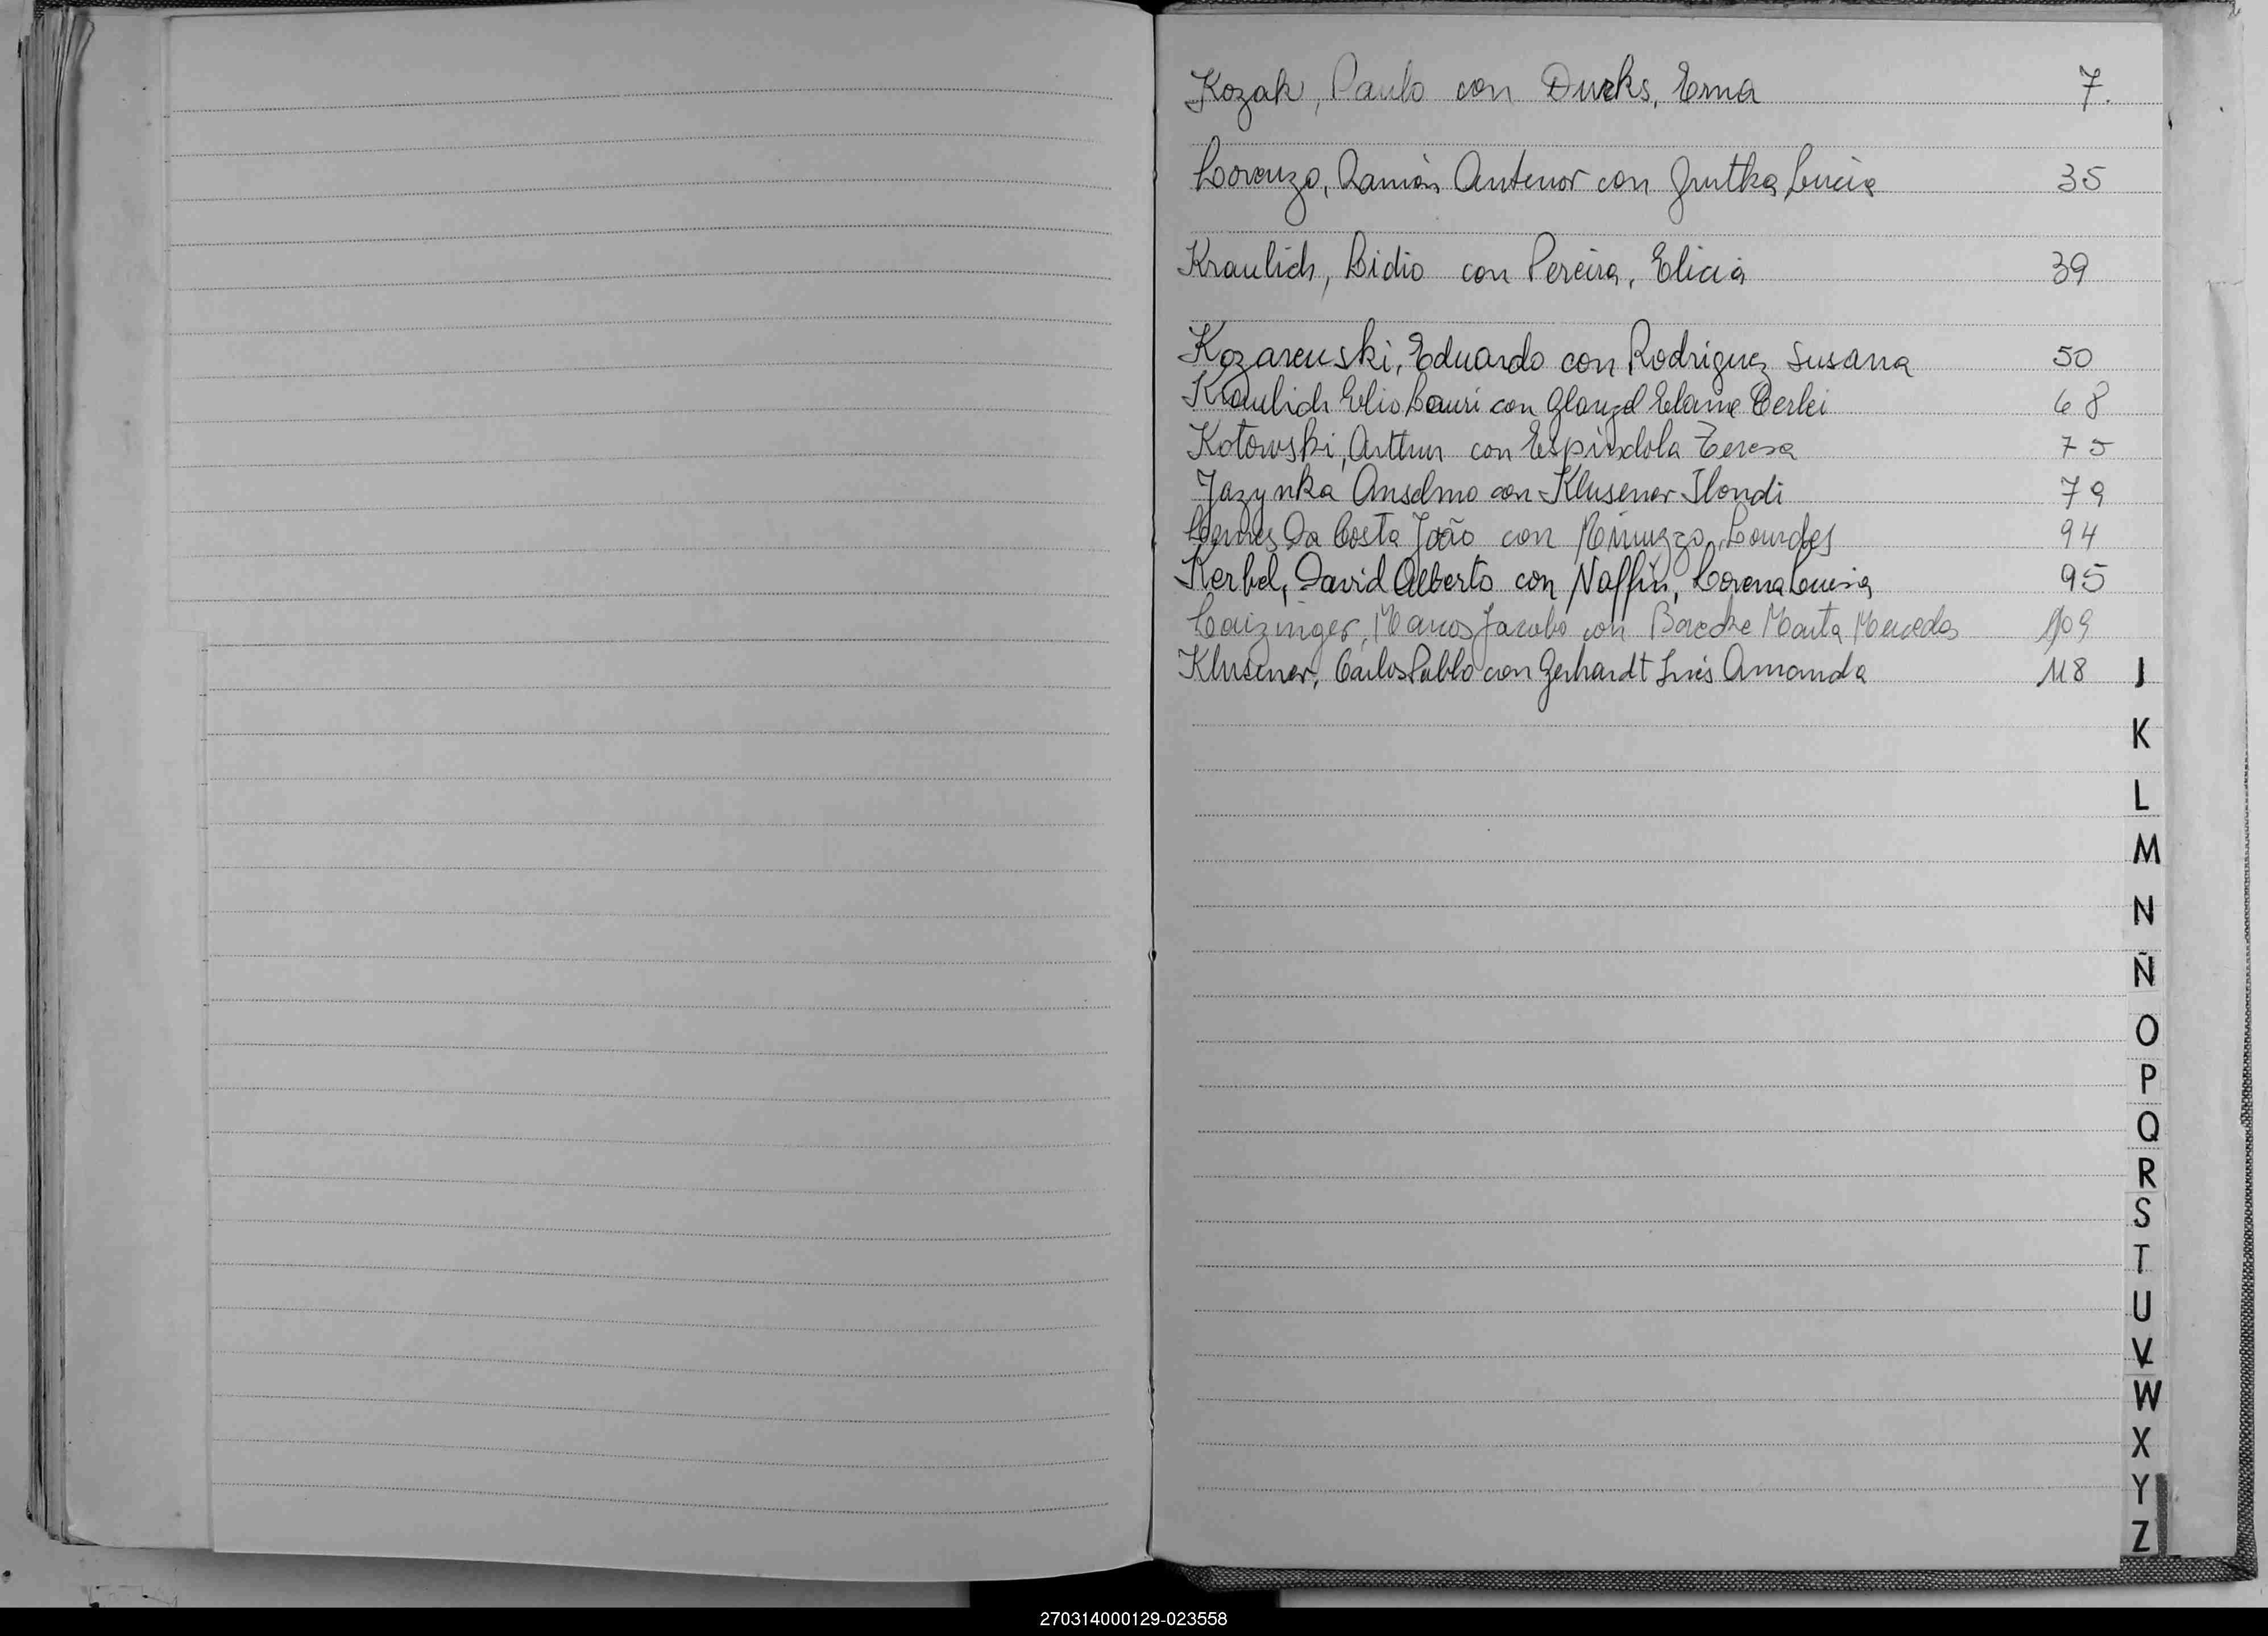 Kozak, Paulo con Durks, Erna 7.
Lorenzo, Ramón Antenor con Grutka Lucia 35
Kraulich, Bidio con Pereira, Elicia 39
Kozareuski, Eduardo con Rodriguez Susana 50
Kraulich Elio Lauri con Elaine 68
Kotowski, Arthur con Espindola Teresa 75
Jazynka Anselmo con Klusener Ilondi 79
Lemes Da Costa João con Lourdes 94
Kerbel, David Alberto con Naffin, Lorena Luisa 95
Laizinger, Marcos Jacobo con Marta Mercedes 109
Klusener, Carlos Pablo con Gerhardt Inés Amanda 118
J
K
L
M
N
Ñ
O
P
Q
R
S
T
U
V
W
X
Y
Z
270314000129-023558